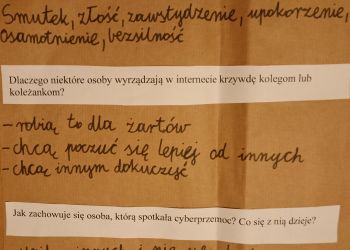 Smutek, złość, zawstydzenie, upokorzenie,
osamotnienie, bezsilność
Dlaczego niektóre osoby wyrządzają w internecie krzywdę kolegom lub
koleżankom?
- robią to dla żartów
- chcą poczuć się lepiej od innych
- chcą innym dokuczyć
Jak zachowuje się osoba, którą spotkała cyberprzemoc? Co się z nią dzieje?